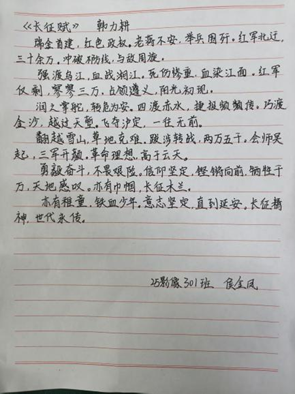 《长征赋》 韩力耕
瑞金首建，红色政权。老蒋不安，举兵围歼。红军北迁，
三十余万，冲破防线，与敌周旋。
强渡乌江，血战湘江，死伤惨重，血染江面。红军
仅剩，寥寥三万，直领遵义，阳光初现。
润之掌舵，转危为安。四渡赤水，捷报频频传。巧渡
金沙，越过天堑。飞夺泸定，一往无前。
翻越雪山，草地克难，跋涉转战，两万五千。会师吴
起，三军开颜，革命理想，高于云天。
勇敢奋斗，不畏艰险。信仰坚定，铿锵向前，牺牲千
万，天地感叹。亦有巾帼，长征木兰。
亦有稚童，铁血少年。意志坚定，直到延安。长征精
神，世代永传。
25影露301班 侯金凤